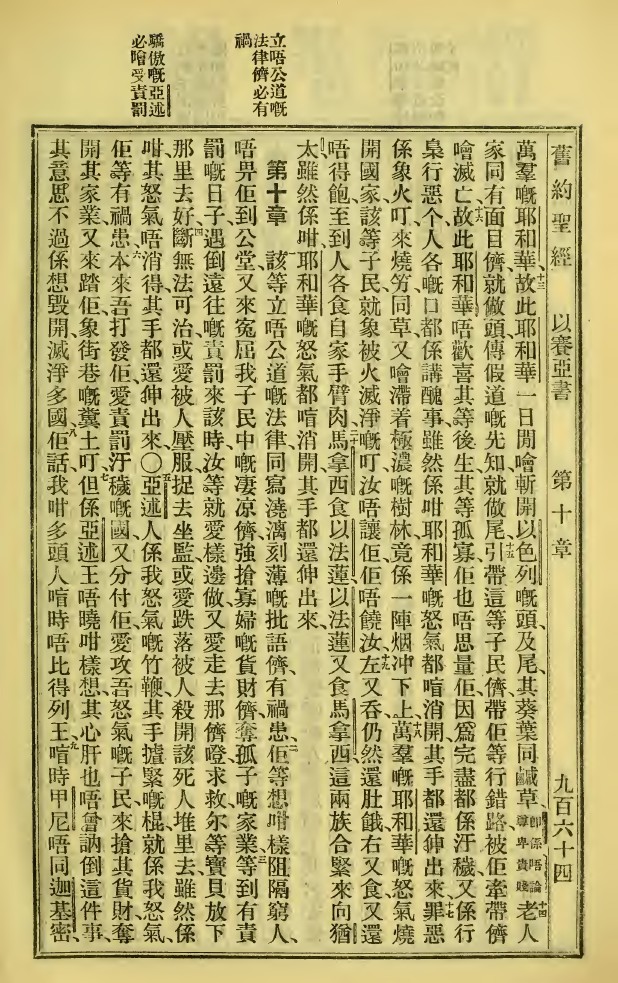 舊約聖經 以賽亞書 第十章 九百六十四
立唔公道嘅
法律儕必有
禍
驕傲嘅亞述
必噲受責罰
萬羣嘅耶和華、十三故此耶和華一日間噲斬開以色列嘅頭及尾、其葵葉同鹹草、卽係唔論尊卑貴賤十四老人
家同有面目儕就做頭、傳假道嘅先知就做尾、十五引帶這等子民儕帶佢等行錯路、被佢牽帶儕
噲滅亡、十六故此耶和華唔歡喜其等後生、其等孤寡佢也唔思量佢、因爲完盡都係汙穢、又係行
梟行惡个人、各嘅口都係講醜事、雖然係咁、耶和華嘅怒氣都唔消開、其手都還伸出來、十七罪惡
係象火叮來燒竻同草、又噲滯着極濃嘅樹林、竟係一陣烟冲下上、十八萬羣嘅耶和華嘅怒氣燒
開國家、該等子民就象被火滅淨嘅叮、汝唔讓佢、佢唔饒汝、十九左又吞、仍然還肚餓、右又食、又還
唔得飽、至到人各食自家手臂肉、二十馬拿西食以法蓮、以法蓮又食馬拿西、這兩族合緊來向猶
太、雖然係咁、耶和華嘅怒氣都唔消開、其手都還伸出來、
第十章 該等立唔公道嘅法律、同寫澆漓刻薄嘅批語儕有禍患、二佢等想咁樣阻隔窮人、
唔畀佢到公堂、又來冤屈我子民中嘅凄凉儕、強搶寡婦嘅貨財儕、奪孤子嘅家業、三等到有責
罰嘅日子、遇倒遠往嘅責罰來該時、汝等就愛樣邊做、又愛走去那儕噔求救、尔等寶貝放下
那里去好、四斷無法可治、或愛被人壓服捉去坐監、或愛跌落被人殺開該死人堆里去、雖然係
咁、其怒氣唔消得、其手都還伸出來、〇五亞述人係我怒氣嘅竹鞭、其手攄緊嘅棍、就係我怒氣、
佢等有禍患、六本來吾打發佢愛責罰汙穢嘅國、又分付佢愛攻吾怒氣嘅子民、來搶其貨財、奪
開其家業、又來踏佢象街巷嘅糞土叮、七但係亞述王唔曉咁樣想、其心肝也唔曾訥倒這件事、
其意思不過係想毀開滅淨多國、八佢話、我咁多頭人喧時唔比得列王、九喧時甲尼唔同迦基密、